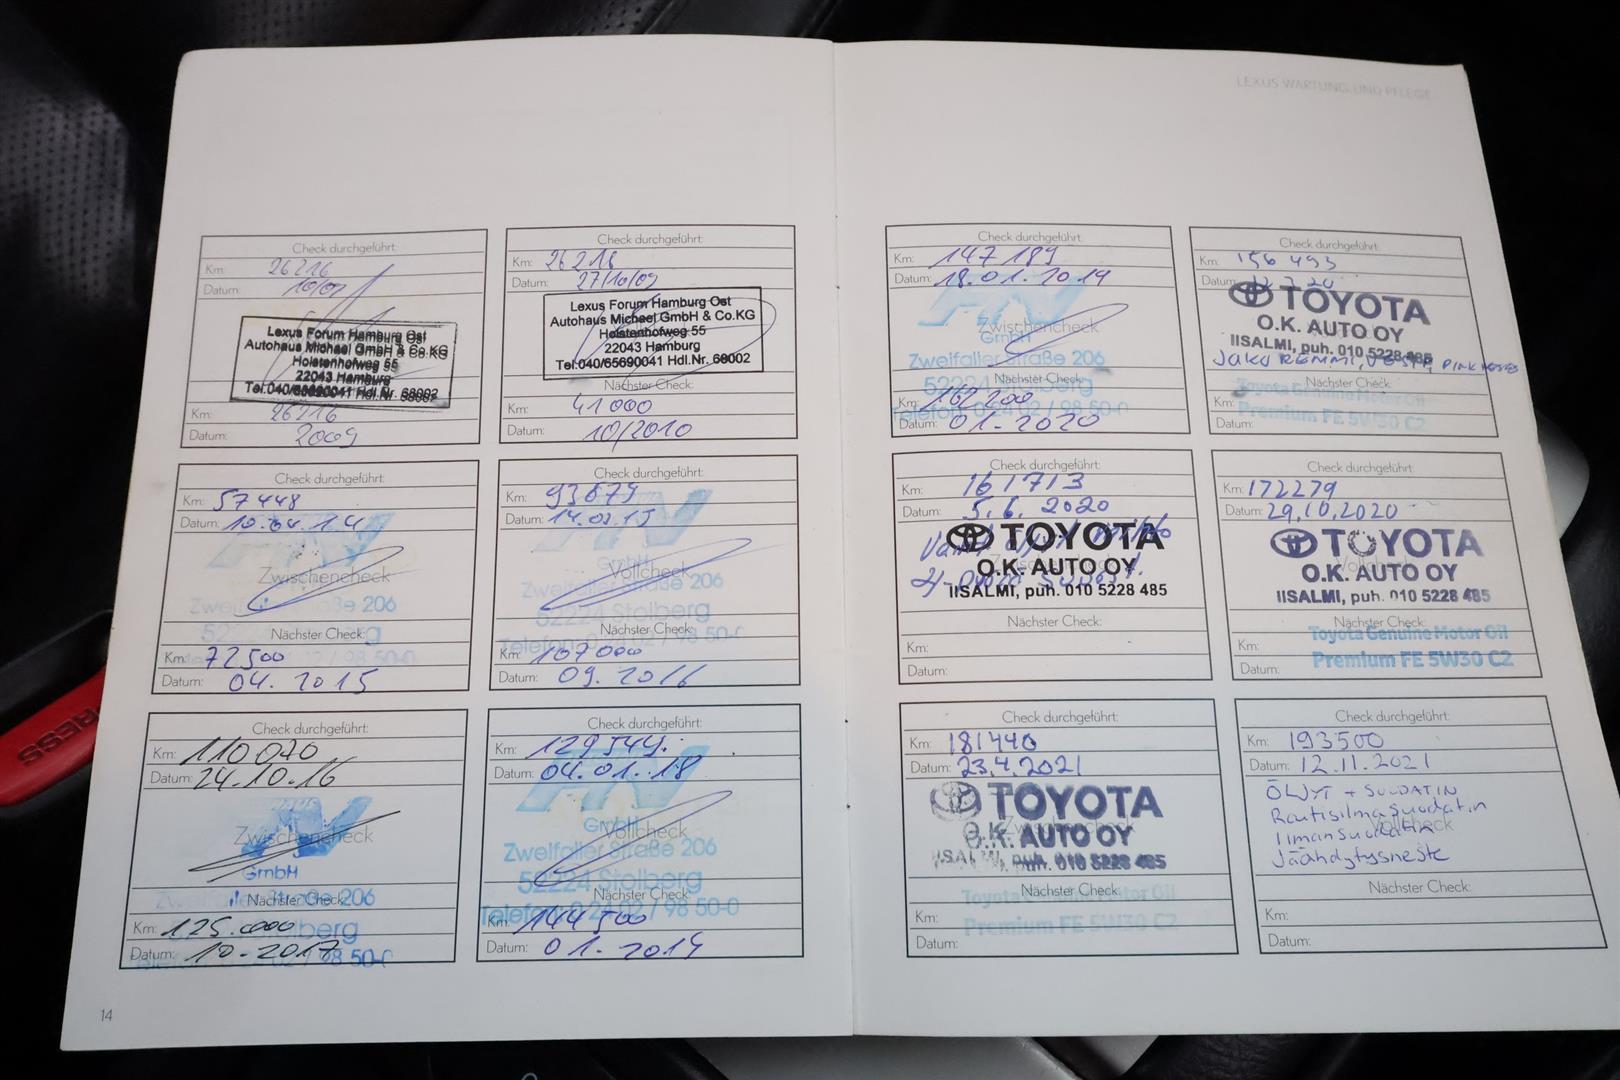 LEXUS WARTUNG UND PFLEGE
Check durchgeführt:
Km: 26216
Datum: 10/09
Lexus Forum Hamburg Ost
Autohaus Michael GmbH & Co.KG
Holstenhofweg 55
22043 Hamburg
Tel.040/65690041 Hdl.Nr. 68002
Km: 26216
Datum: 2009
Check durchgeführt:
Km: 26216
Datum: 27/10/09
Lexus Forum Hamburg Ost
Autohaus Michael GmbH & Co.KG
Holstenhofweg 55
22043 Hamburg
Tel.040/65690041 Hdl.Nr. 68002
Nächster Check:
Km: 41000
Datum: 10/2010
Check durchgeführt:
Km: 57448
Datum: 10.04.14
Zwischencheck
Zweifaller Straße 206
52224 Stolberg
Nächster Check:
Km: 72500
Datum: 04.2015
Check durchgeführt:
Km: 93679
Datum: 14.09.15
GmbH
Vollcheck
Zweifaller Straße 206
52224 Stolberg
Telefon: 0 24 02 / 98 50-0
Nächster Check:
Km: 107000
Datum: 09.2016
Check durchgeführt:
Km: 110070
Datum: 24.10.16
Zwischencheck
GmbH
Nächster Check:
Km: 125.000
Datum: 10-2017
Check durchgeführt:
Km: 129544.
Datum: 04.01.18
GmbH
Vollcheck
Zweifaller Straße 206
52224 Stolberg
Telefon: 0 24 02 / 98 50-0
Nächster Check:
Km: 144500
Datum: 01.2019
14
Check durchgeführt:
Km: 147189
Datum: 18.01.2019
Zwischencheck
GmbH
Zweifaller Straße 206
52224 Stolberg
Telefon: 0 24 02 / 98 50-0
Nächster Check:
Km: 162200
Datum: 01-2020
Check durchgeführt:
Km: 156493
Datum:
TOYOTA
O.K. AUTO OY
IISALMI, puh. 010 5228 485
Nächster Check:
Toyota Genuine Motor Oil
Km:
Premium FE 5W30 C2
Datum:
Check durchgeführt:
Km: 161713
Datum: 5.6.2020
TOYOTA
O.K. AUTO OY
IISALMI, puh. 010 5228 485
Nächster Check:
Km:
Datum:
Check durchgeführt:
Km: 172279
Datum: 29.10.2020
TOYOTA
Vollcheck
O.K. AUTO OY
IISALMI, puh. 010 5228 485
Nächster Check:
Toyota Genuine Motor Oil
Km:
Premium FE 5W30 C2
Datum:
Check durchgeführt:
Km: 181440
Datum: 23.4.2021
TOYOTA
Zwischencheck
O.K. AUTO OY
IISALMI, puh. 010 5228 485
Nächster Check:
Toyota Genuine Motor Oil
Km:
Premium FE 5W30 C2
Datum:
Check durchgeführt:
Km: 193500
Datum: 12.11.2021
ÖLJYT + SUODATIN
Raitisilmasuodatin
Vollcheck
Ilmansuodatin
Jäähdytysneste
Nächster Check:
Km:
Datum: